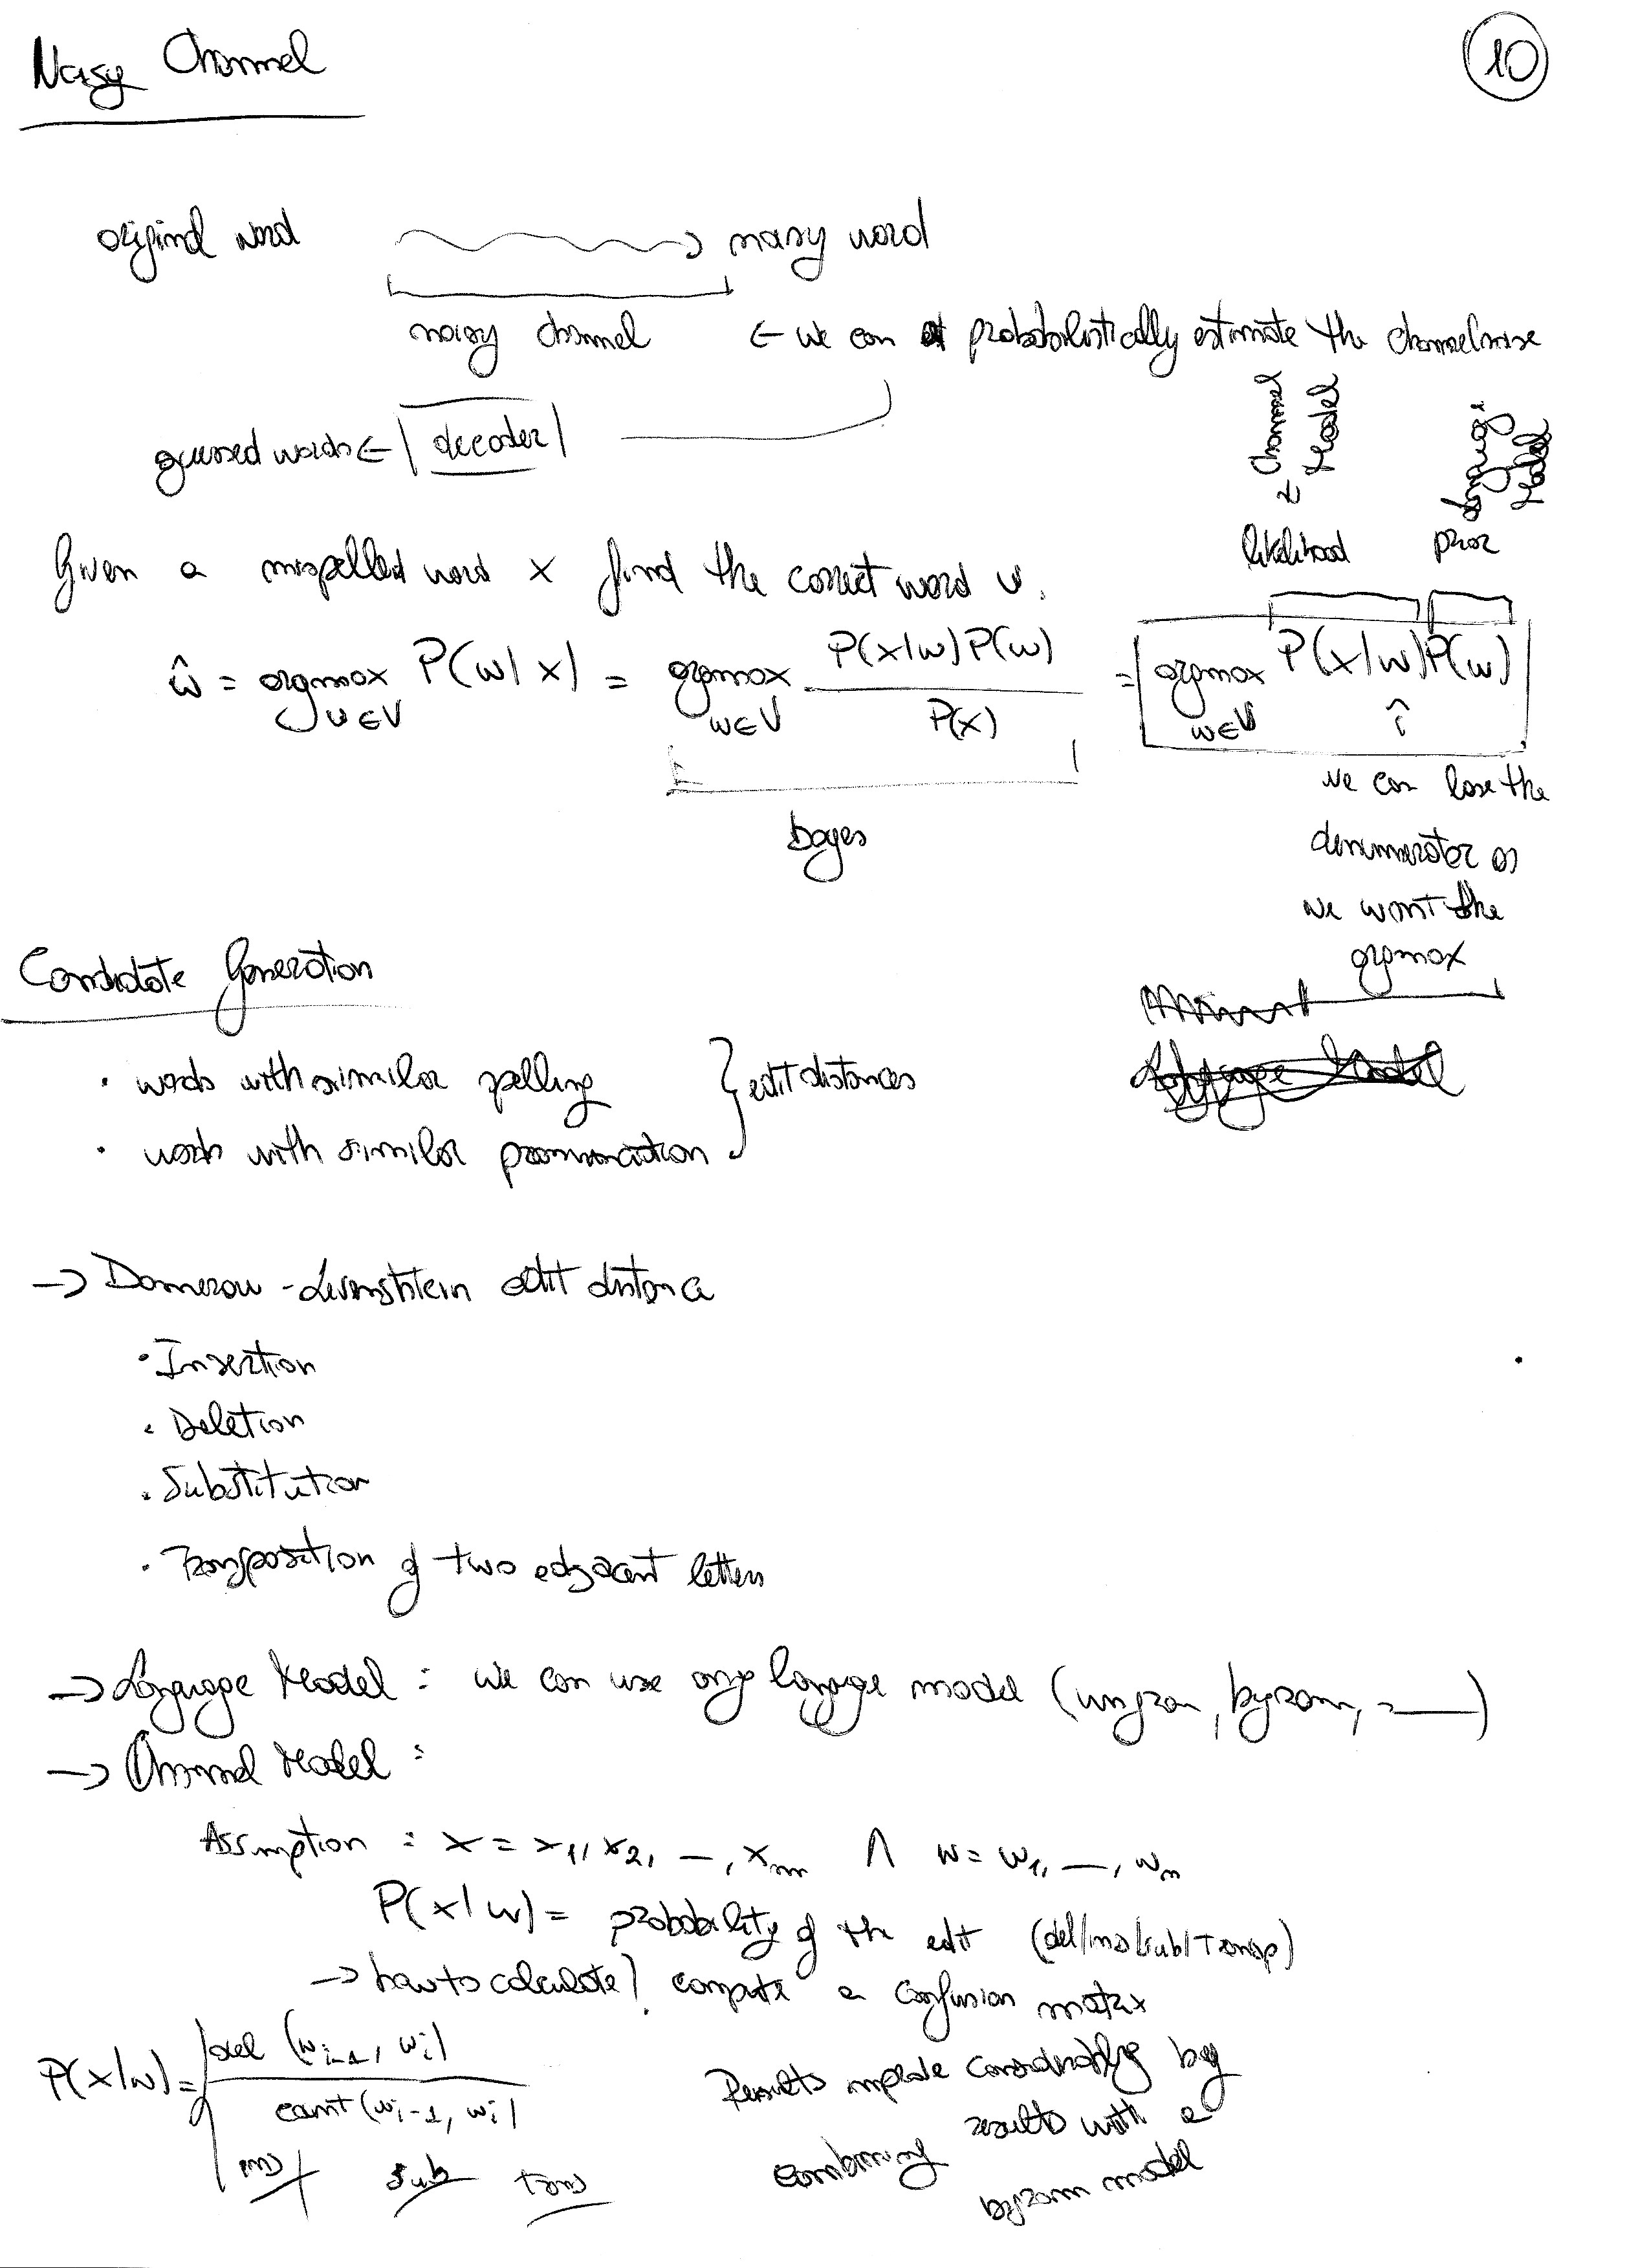 Noisy Channel
10
original word → noisy word
noisy channel ← we can probabilistically estimate the channel noise
guessed words ← | decoder |
← Channel Model
Language Model
likelihood prior
Given a mispelled word x find the correct word w.
ŵ = argmax P(w|x) = argmax P(x|w)P(w) / P(x) = argmax P(x|w)P(w)
w∈V w∈V w∈V ↑
bayes
we can lose the
denumerator as
we want the
argmax
Candidate Generation
• words with similar spelling
• words with similar pronunciation
} edit distances
→ Damerau-Levenshtein edit distance
• Insertion
• Deletion
• Substitution
• Transposition of two adjacent letters
→ Language Model : we can use any language model (unigram, bygram, ...)
→ Channel Model :
Assumption : x = x1, x2, ..., xm ∧ w = w1, ..., wn
P(x|w) = probability of the edit (del/ins/sub/transp)
→ how to calculate? compute a confusion matrix
P(x|w) = { del (wi-1, wi) / count (wi-1, wi)
ins sub trans
Results improve considerably by
combining results with a
bygram model